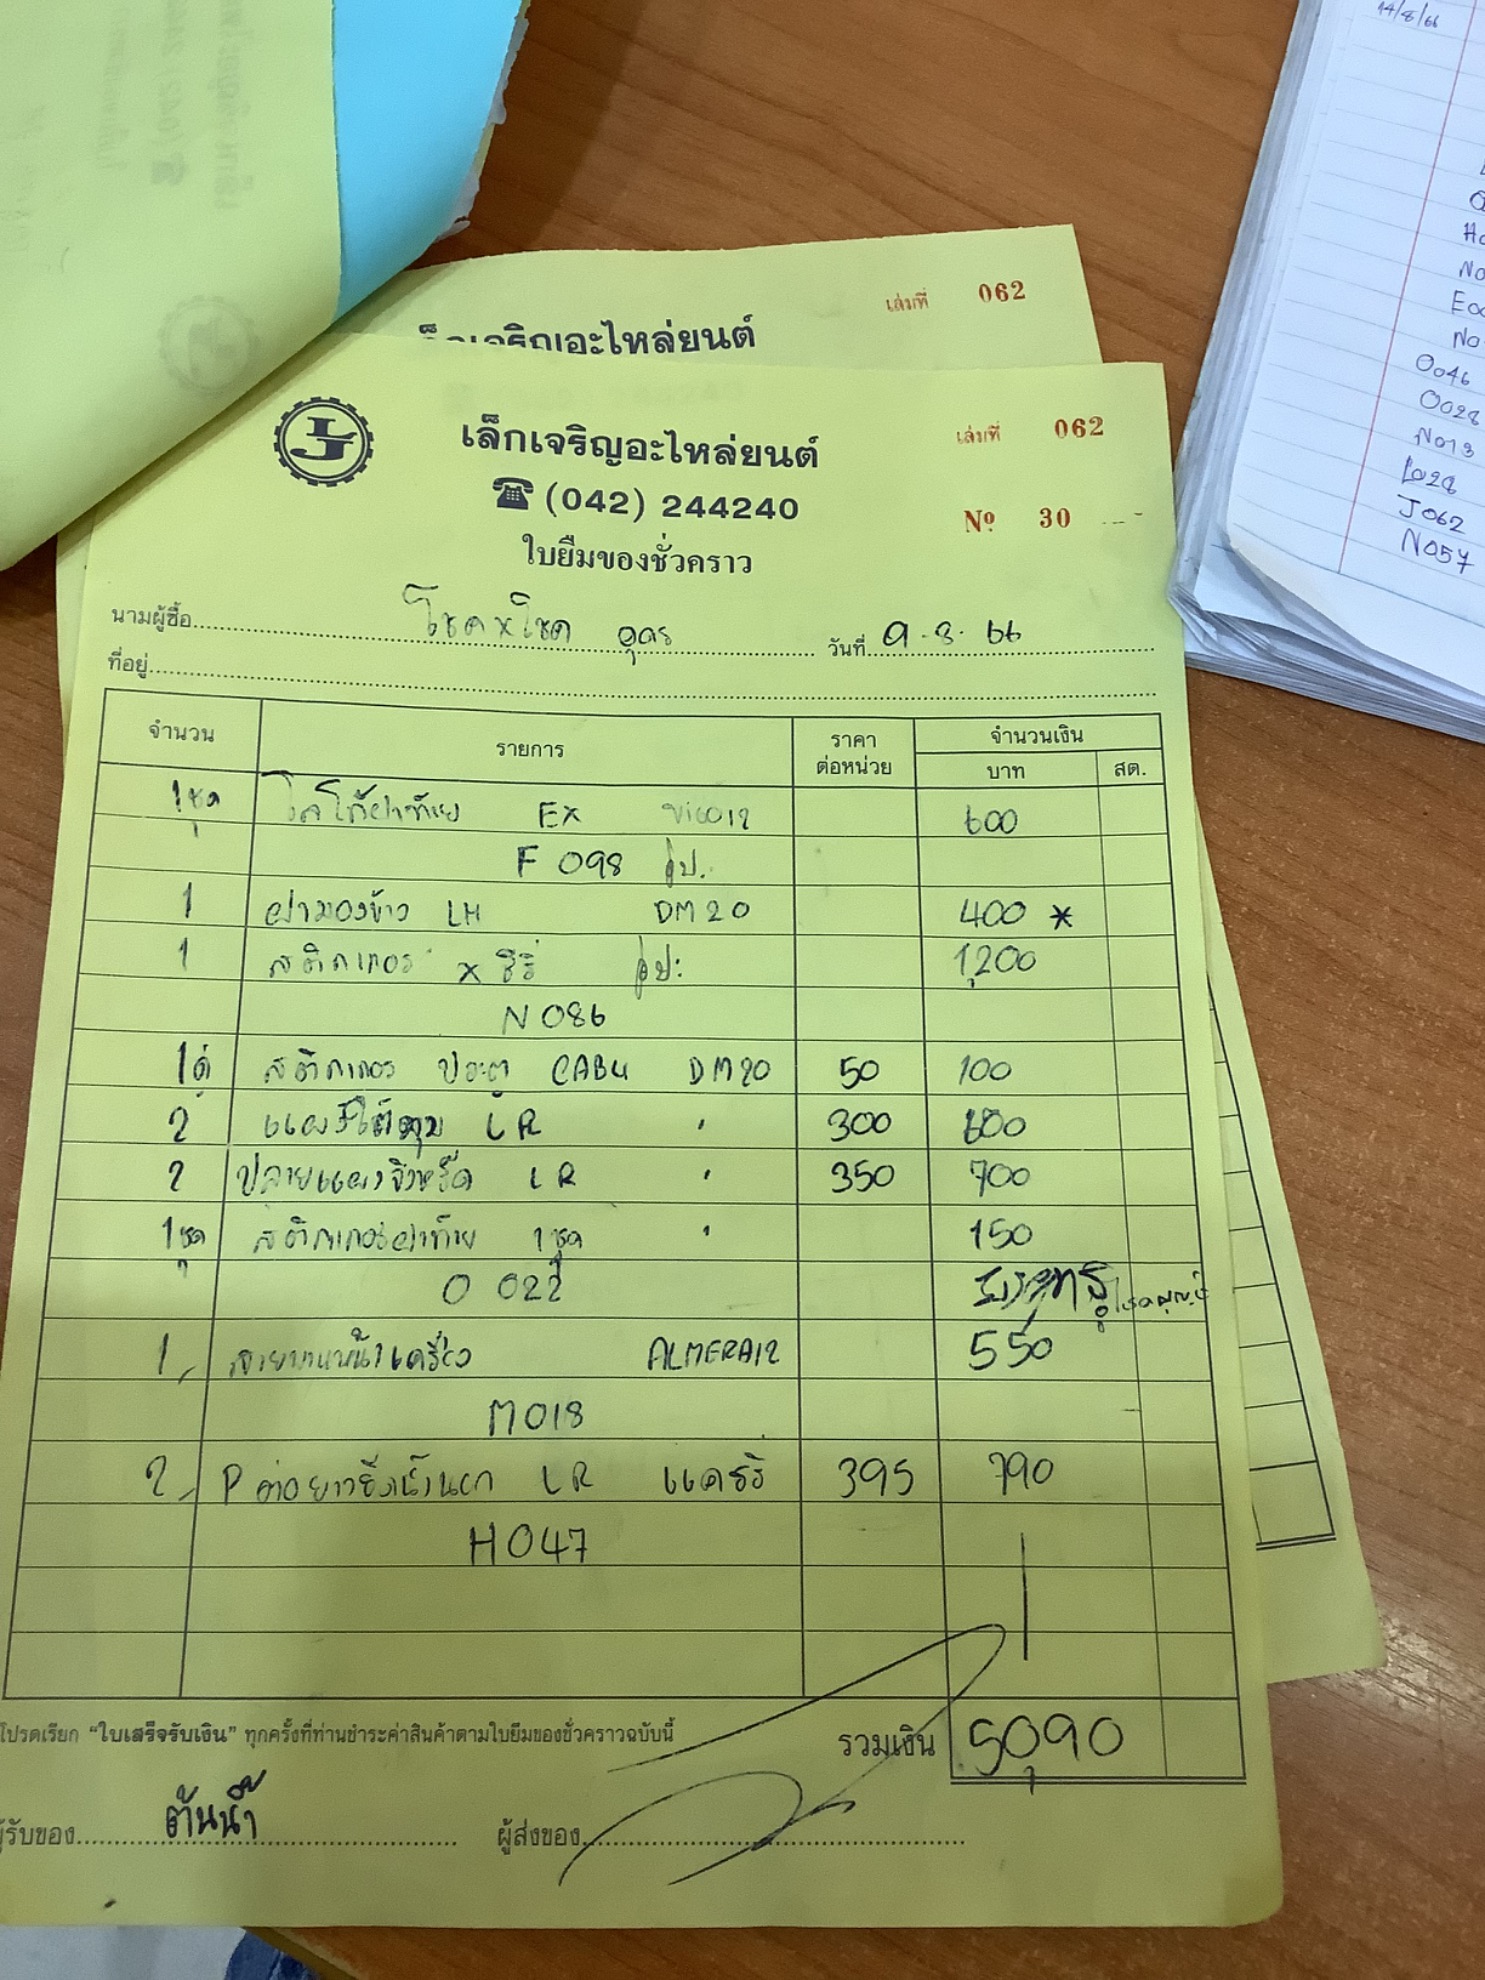 เล่มที่ 062
เล็กเจริญอะไหล่ยนต์
LJ
เล็กเจริญอะไหล่ยนต์
เล่มที่ 062
(042) 244240
Nº 30
ใบยืมของชั่วคราว
นามผู้ซื้อ โชค x โชค อุดร วันที่ 9.8.66
ที่อยู่
จำนวน รายการ ราคาต่อหน่วย จำนวนเงิน
บาท สต.
1ชุด โลโก้ฝาท้าย EX VIGO12 600
F 098
1 ฝามองข้าง LH DM20 400 *
1 สติกเกอร์ x ซีรี่ 1,200
N 086
1คู่ สติกเกอร์ ประตู CAB4 DM20 50 100
2 LR " 300 600
2 LR " 350 700
1ชุด สติกเกอร์ฝาท้าย 1ชุด " 150
O 022
1 ALMERA12 550
M018
2 P LR แคริ 395 790
H047
โปรดเรียก "ใบเสร็จรับเงิน" ทุกครั้งที่ท่านชำระค่าสินค้าตามใบยืมของชั่วคราวฉบับนี้
รวมเงิน 5,090
ผู้รับของ ต้นน้ำ ผู้ส่งของ
14/8/66
O046
O028
N013
L028
J062
N057